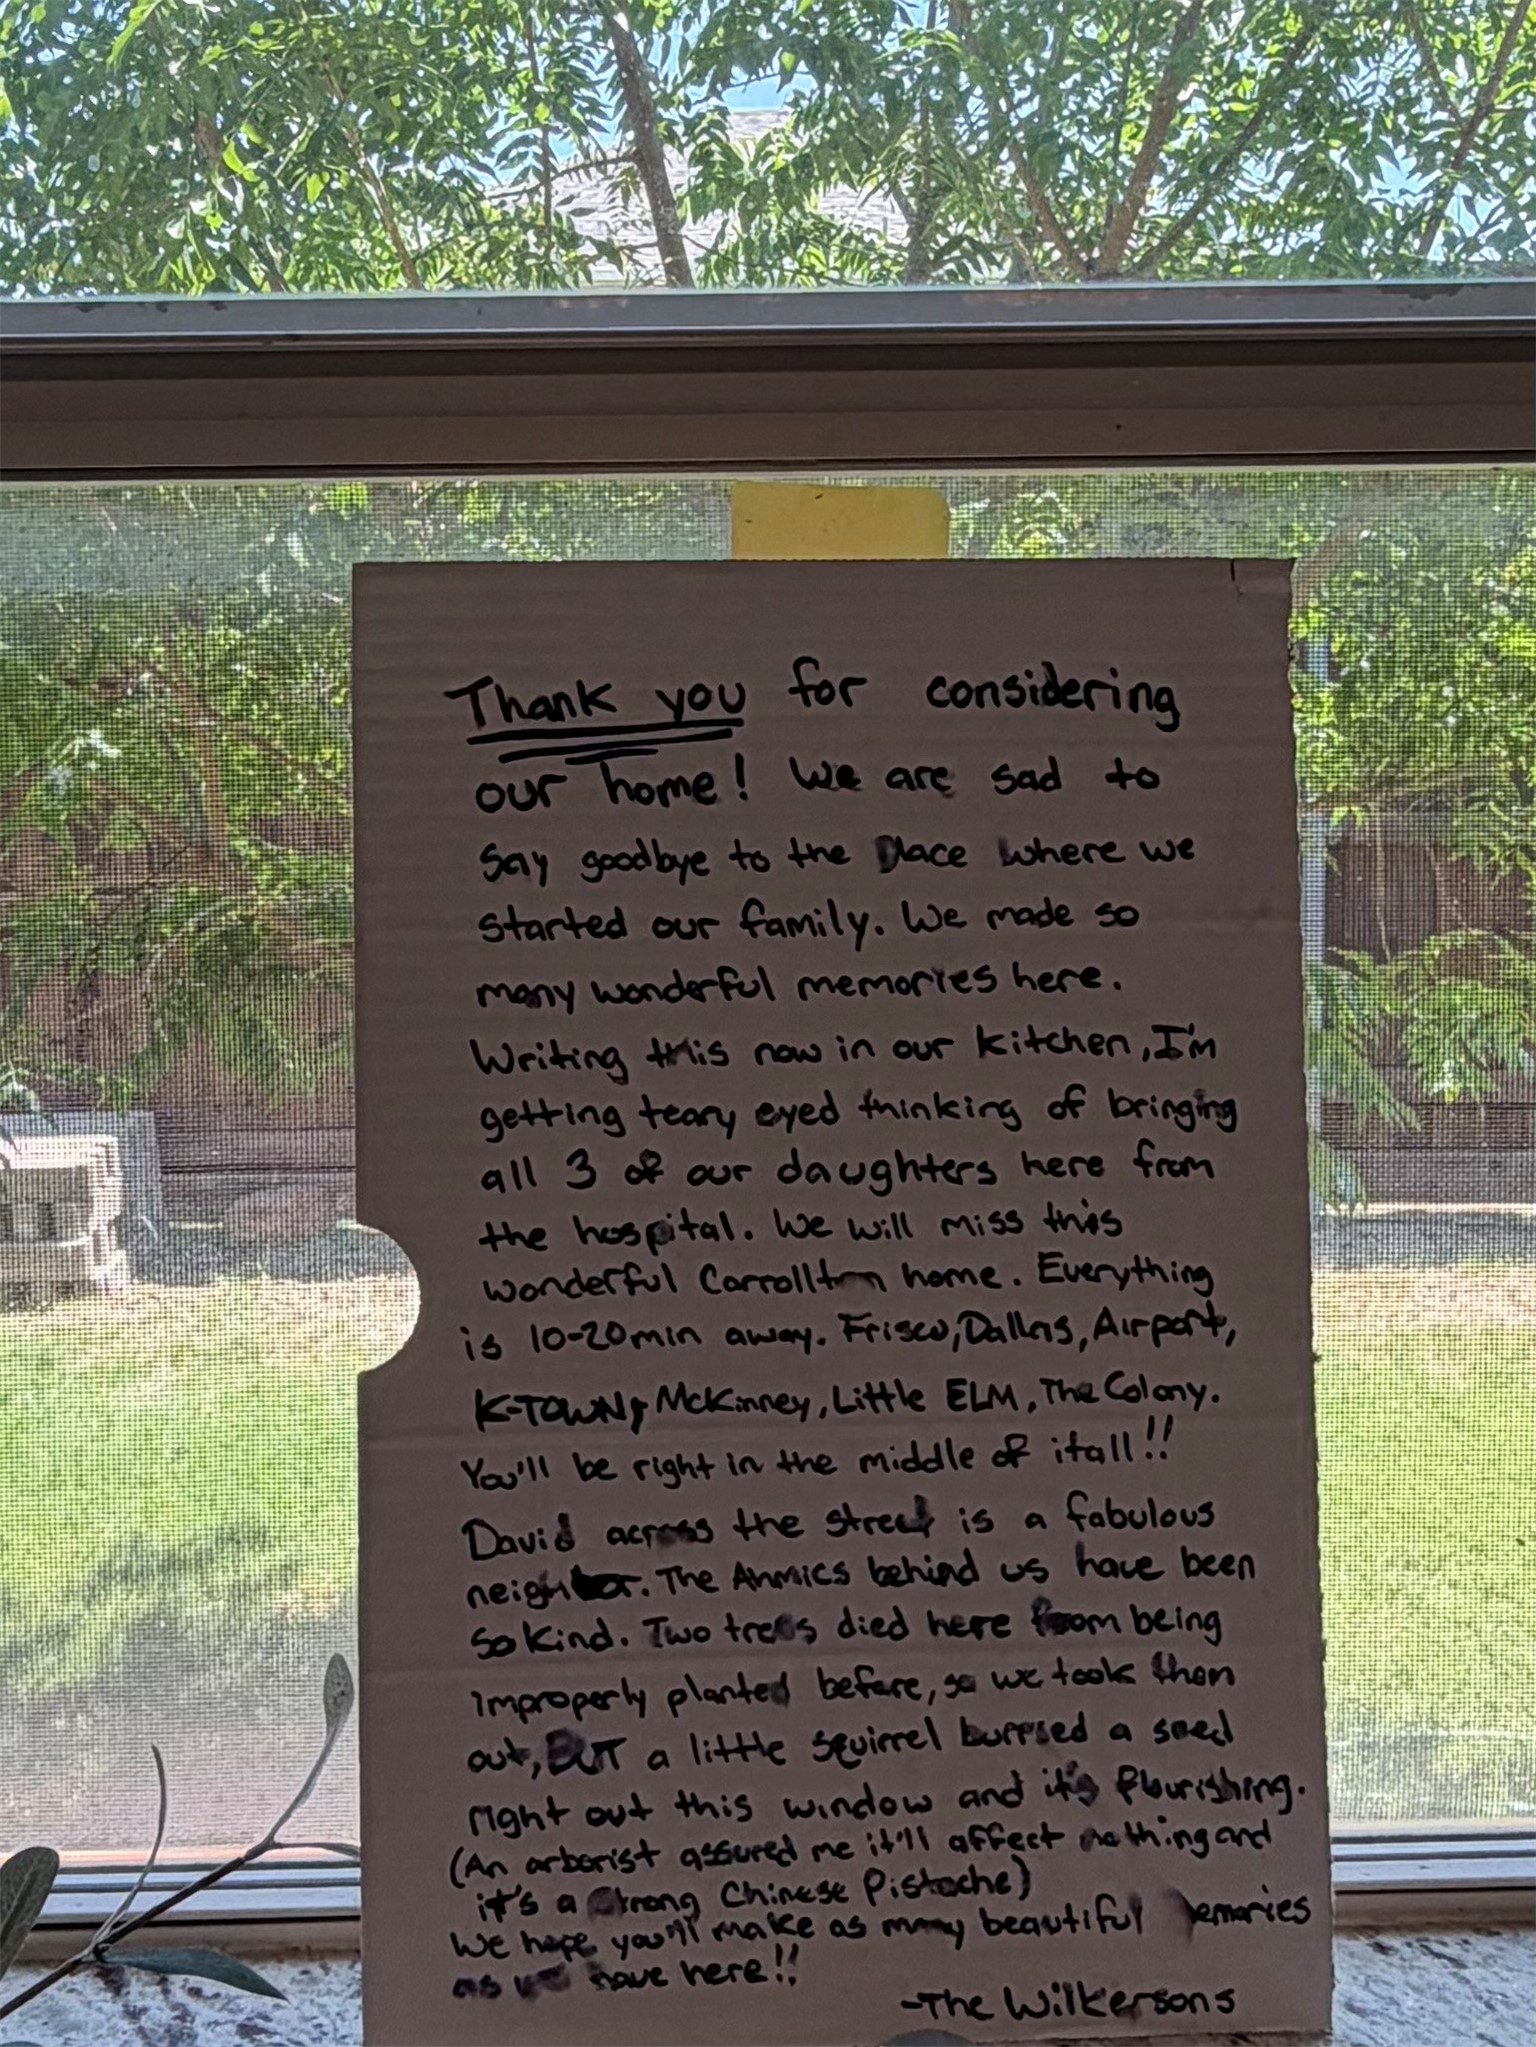 Thank you for considering
our home! We are sad to
say goodbye to the place where we
started our family. We made so
many wonderful memories here.
Writing this now in our kitchen, I'm
getting teary eyed thinking of bringing
all 3 of our daughters here from
the hospital. We will miss this
wonderful Carrollton home. Everything
is 10-20min away. Frisco, Dallas, Airport,
K-TOWN, McKinney, Little ELM, The Colony.
You'll be right in the middle of it all!!
David across the street is a fabulous
neighbor. The Anmics behind us have been
so kind. Two trees died here from being
improperly planted before, so we took them
out, BUT a little squirrel burried a seed
right out this window and it's flourishing.
(An arborist assured me it'll affect nothing and
it's a strong Chinese Pistache)
We hope you'll make as many beautiful memories
as we have here!!
-The Wilkersons